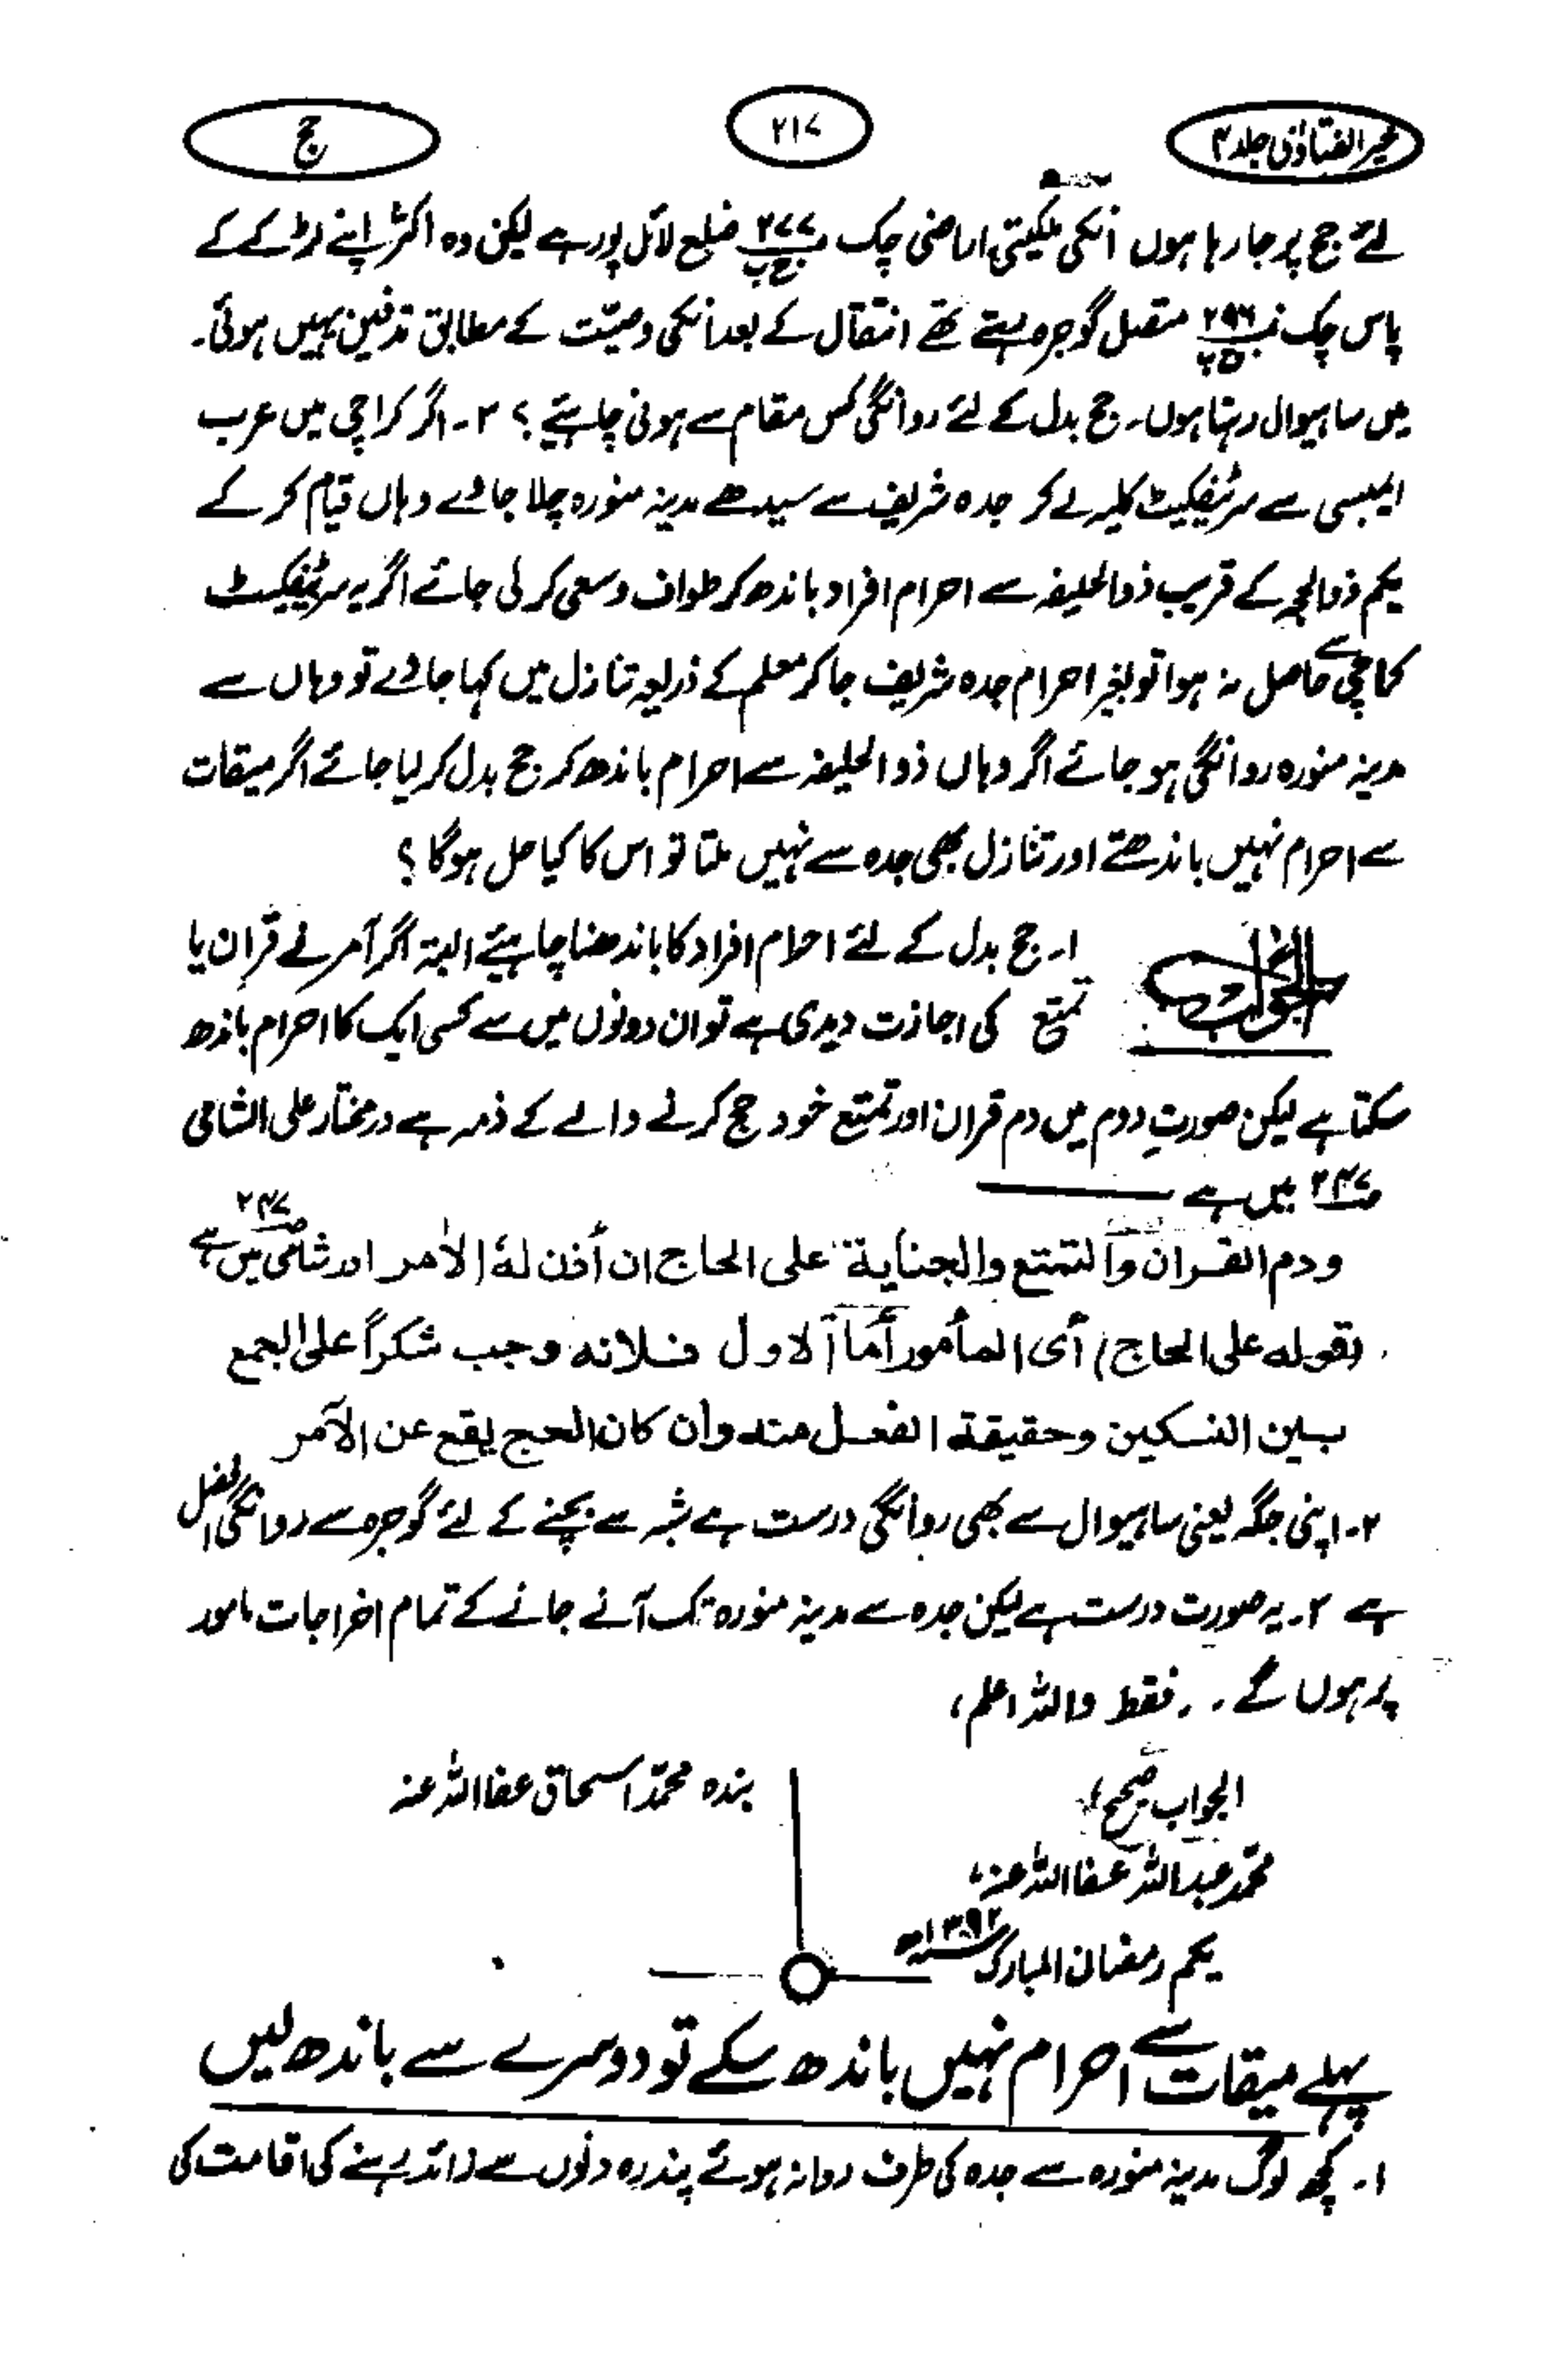 خیر الفتاویٰ جلد ۴
۲۱۷
حج
لئے حج پر جارہا ہوں انکی ملکیتی اراضی چک ۲۷۷ ضلع لائل پور ہے لیکن وہ اکثر اپنے لڑکے کے
پاس چک نمبر ۲۹۶ متصل گوجرہ رہتے تھے انتقال کے بعد انکی وصیت کے مطابق تدفین یہیں ہوئی۔
میں ساہیوال رہتا ہوں۔ حج بدل کے لئے روانگی کس مقام سے ہونی چاہیئے ؟ ۳۔ اگر کراچی میں عرب
ایمبسی سے سرٹیفکیٹ کلیر لے کر جدہ شریف سے سیدھے مدینہ منورہ چلا جاوے وہاں قیام کر کے
یکم ذوالحجہ کے قریب ذوالحلیفہ سے احرام افراد باندھ کر طواف و سعی کر لی جائے اگر یہ سرٹیفکیٹ
کراچی سے حاصل نہ ہوا تو بغیر احرام جدہ شریف جا کر معلم کے ذریعہ تنازل میں کہا جاوے تو وہاں سے
مدینہ منورہ روانگی ہو جائے اگر وہاں ذوالحلیفہ سے احرام باندھ کر حج بدل کر لیا جائے اگر میقات
سے احرام نہیں باندھتے اور تنازل بھی جدہ سے نہیں ملتا تو اس کا کیا حل ہوگا ؟
الجواب
۱۔ حج بدل کے لئے احرام افراد کا باندھنا چاہیئے البتہ اگر آمر نے قران یا
تمتع کی اجازت دیدی ہے تو ان دونوں میں سے کسی ایک کا احرام باندھ
سکتا ہے لیکن صورتِ دوم میں دم قران اور تمتع خود حج کرنے والے کے ذمہ ہے درمختار علی الشامی
ص۲۴۷ میں ہے
ودم القران والتمتع والجناية على الحاج ان أذن لهٗ الأمر اور شامی ص۲۴۷ میں ہے
(قوله على الحاج) أى المأمور أما الاول فلانه وجب شكراً على الجمع
بين النسكين وحقيقة الفعل منه وان كان الحج يقع عن الآمر
۲۔ اپنی جگہ یعنی ساہیوال سے بھی روانگی درست ہے شبہ سے بچنے کے لئے گوجرہ سے روانگی افضل
ہے ۳۔ یہ صورت درست ہے لیکن جدہ سے مدینہ منورہ تک آنے جانے کے تمام اخراجات مامور
پر ہوں گے۔ . فقط واللہ اعلم،
بندہ محمد اسحاق عفا اللہ عنہ
الجواب صحیح،
محمد عبداللہ عفا اللہ عنہ،
یکم رمضان المبارک ۱۳۹۲ھ
پہلے میقات سے احرام نہیں باندھ سکے تو دوسرے سے باندھ لیں
۱۔ کچھ لوگ مدینہ منورہ سے جدہ کی طرف روانہ ہوئے پندرہ دنوں سے زائد رہنے کی اقامت کی